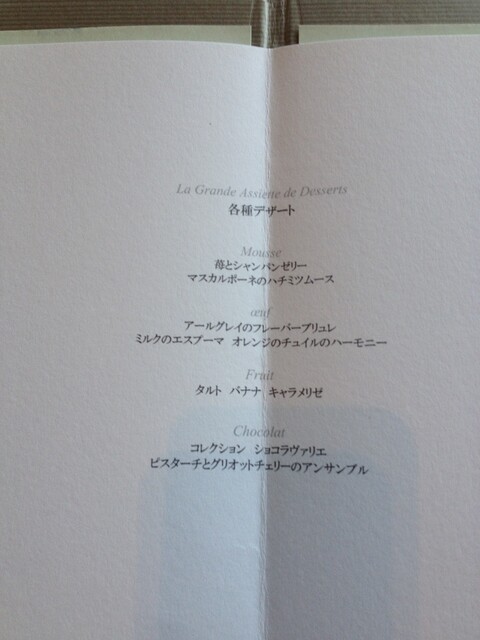 La Grande Assiette de Desserts
各種デザート
Mousse
苺とシャンパンゼリー
マスカルポーネのハチミツムース
œuf
アールグレイのフレーバーブリュレ
ミルクのエスプーマ オレンジのチュイルのハーモニー
Fruit
タルト バナナ キャラメリゼ
Chocolat
コレクション ショコラヴァリエ
ピスターチとグリオットチェリーのアンサンブル